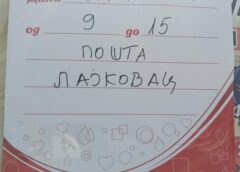 од 9 до 15
ПОШТА
ЛАЗКОВАЦ